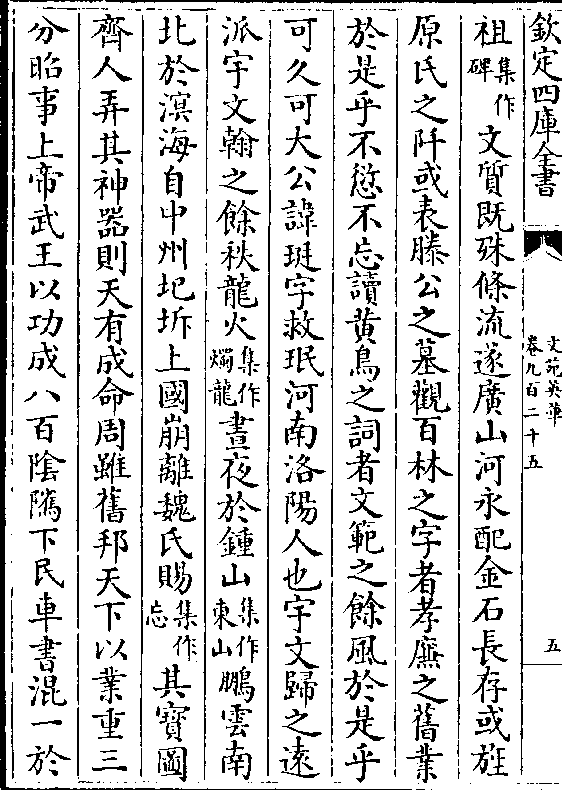 欽定四庫全書
文苑英華
卷九百二十五
五
祖集作碑文質既殊條流遂廣山河永配金石長存或旌
原氏之阡或表滕公之墓觀百林之字者孝廉之舊業
於是乎不愆不忘讀黄鳥之詞者文範之餘風於是乎
可久可大公諱珽字叔珉河南洛陽人也宇文歸之遠
派宇文翰之餘秩龍火集作燭龍晝夜於鍾山集作東山鵬雲南
北於溟海自中州圯坼上國崩離魏氏賜集作忘其寶圖
齊人弄其神器則天有成命周雖舊邦天下以業重三
分昭事上帝武王以功成八百陰隲下民車書混一於